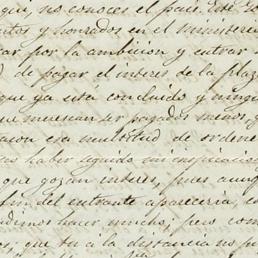 aqui, no conoces el pais. este Go
ntos y honrados en el ministerio
car por la ambicion y entrar
d de pagar el interes de la plaz
que ya está concluido y ningu
que merescan ser pagados menos,
esa multitud de ordene
haber seguido mi inspiracion
que gozan interes, pues aunq
fin del entrante apareceria, co
podriamos hacer mucho; pero com
os, que tu a la distancia no pu